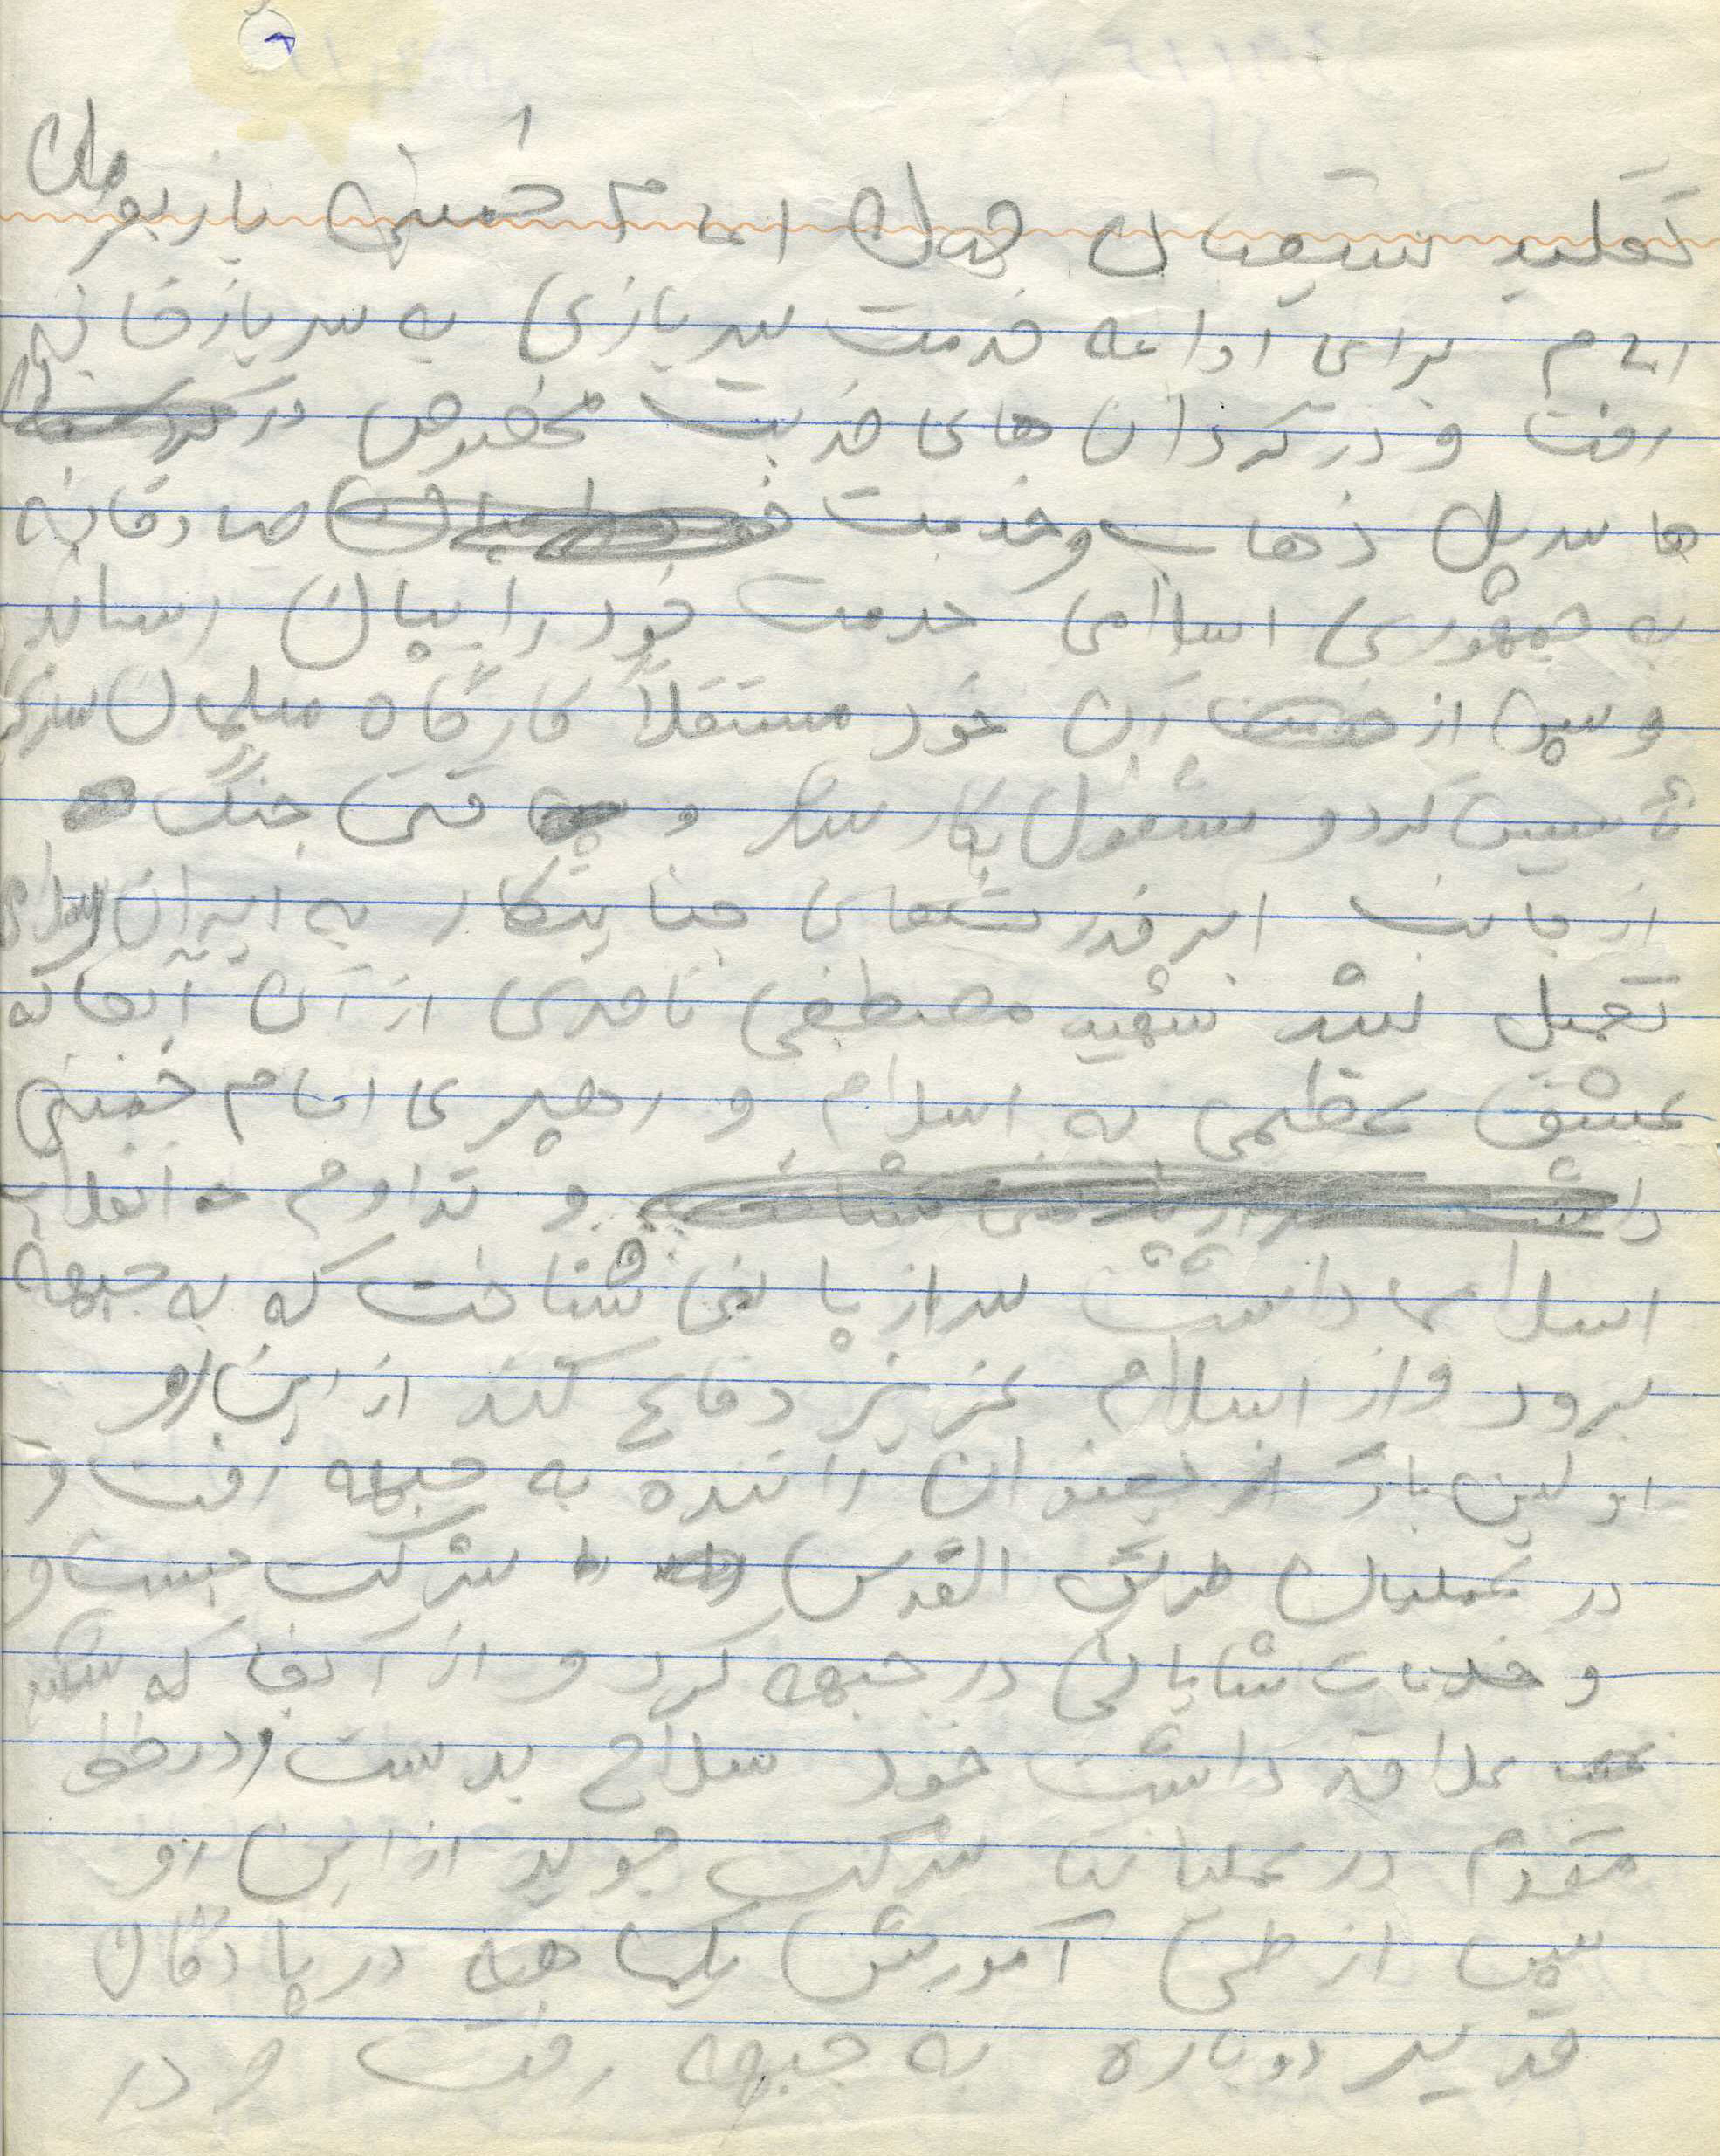 تقلید شیعیان جهان امام خمینی بازبفرمان
امام برای ادامه خدمت سربازی به سربازخانه
رفت و در گردان های ضربت مخصوص در
ها سرپل ذهاب وخدمت صادقانه
به جمهوری اسلامی خدمت خود را بپایان رساند
و سپس از آن خود مستقلاً کارگاه مبلمان سازی
تأسیس کرد و مشغول بکار شد و قتی جنگ
از جانب ابرقدرتهای جنایتکار به ایران اسلامی
تحمیل شد شهید مصطفی نامدی از آن آنجا که
عشق عظیمی به اسلام و رهبری امام خمینی
و تداوم انقلاب
اسلامی داشت سر از پا نمی شناخت که به جبهه
برود و از اسلام عزیز دفاع کند از این رو
اولین بار بعنوان راننده به جبهه رفت و
در عملیات طریق القدس شرکت جست و
و خدمات شایانی در جبهه کرد و از آنجا که شدید
علاقه داشت خود سلاح بدست در خط
مقدم در عملیات شرکت جوید از این رو
پس از طی آموزش یکماهه در پادگان
قدیر دوباره به جبهه رفت و در